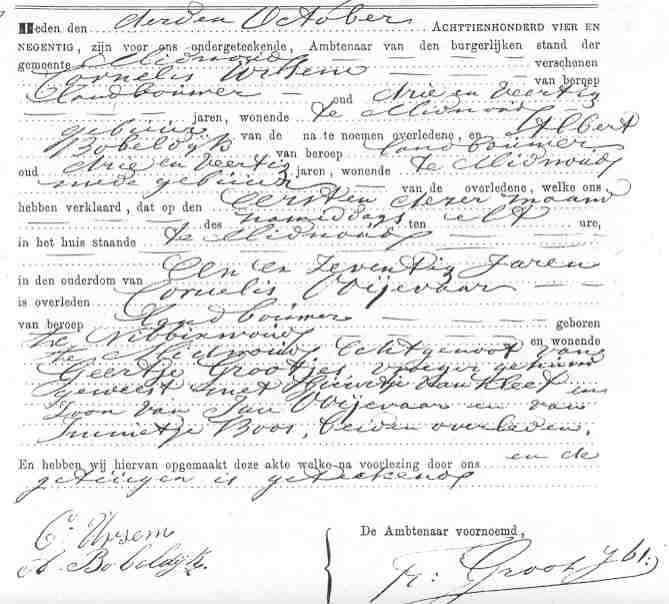 Heden den derden October ACHTTIENHONDERD VIER EN
NEGENTIG, zijn voor ons ondergeteekende, Ambtenaar van den burgerlijken stand der
gemeente Midwoud verschenen
Cornelis Ursem van beroep
landbouwer oud drie en veertig
jaren, wonende te Midwoud
gebuur van de na te noemen overledene, en Albert
Bobeldijk van beroep landbouwer
oud drie en veertig jaren, wonende te Midwoud
mede gebuur van de overledene, welke ons
hebben verklaard, dat op den eersten dezer maand
des namiddags ten elf ure,
in het huis staande te Midwoud
in den ouderdom van een en zeventig jaren
is overleden Cornelis Vijevaar
van beroep landbouwer geboren
te Nibbixwoud en wonende
te Midwoud echtgenoot van
Geertje Grootjes vroeger gehuwd
geweest met Guurtje van Kleef en
zoon van Jan Vijevaar en van
Immetje Boos, beiden overleden.
En hebben wij hiervan opgemaakt deze akte welke na voorlezing door ons en de
getuigen is geteekend
C. Ursem
A. Bobeldijk.
De Ambtenaar voornoemd,
Groot